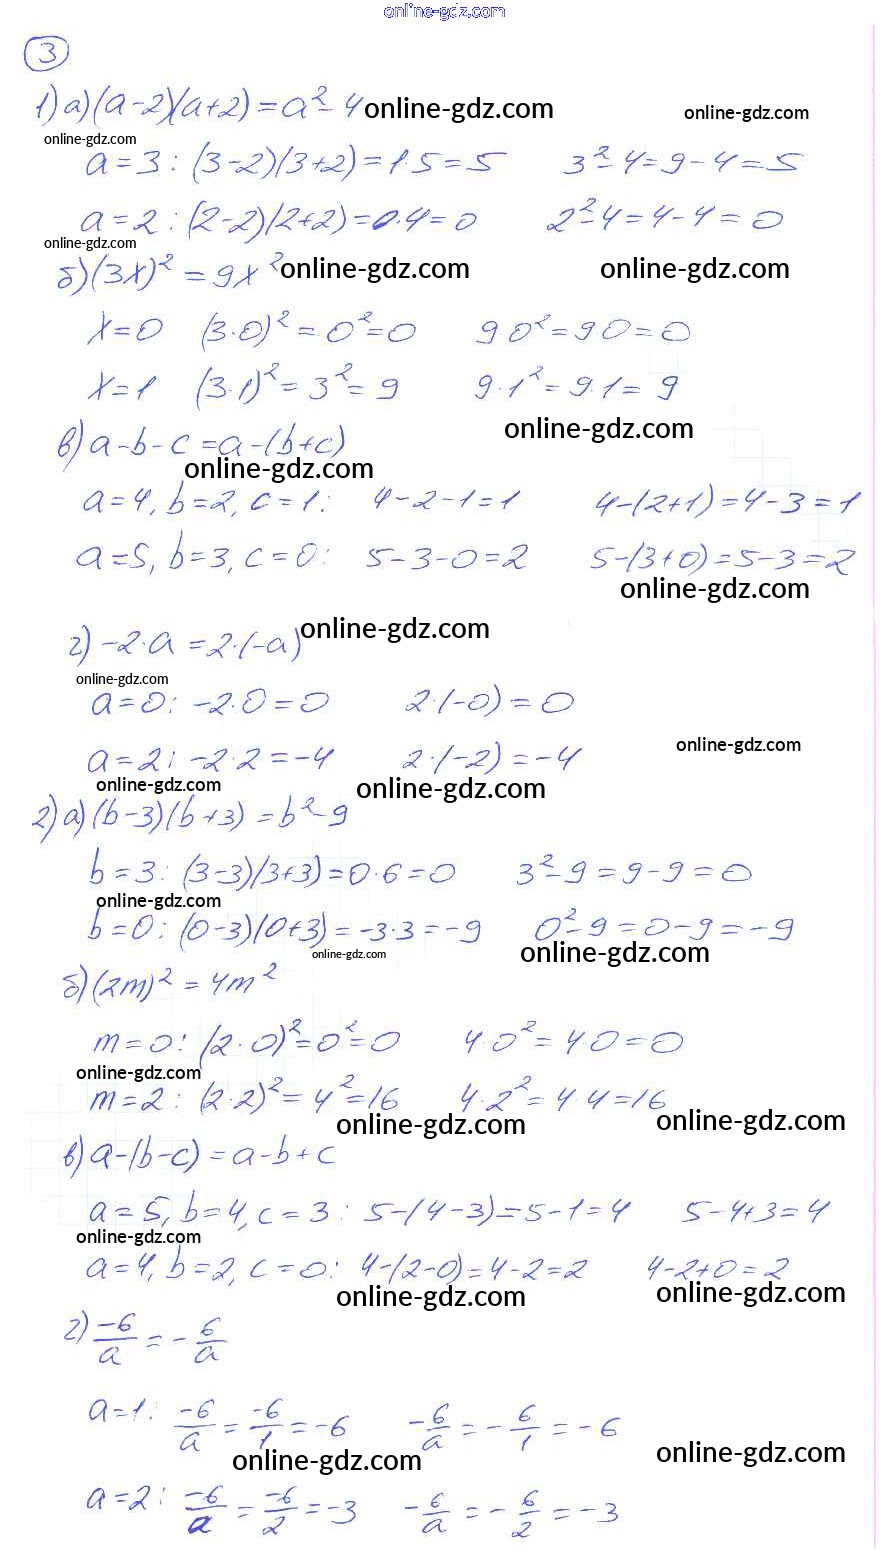 online-gdz.com
3
1) а) (a-2)(a+2) = a² - 4 online-gdz.com online-gdz.com
online-gdz.com
a = 3 : (3-2)(3+2) = 1·5 = 5 3² - 4 = 9 - 4 = 5
a = 2 : (2-2)(2+2) = 0·4 = 0 2² - 4 = 4 - 4 = 0
online-gdz.com
б) (3x)² = 9x² online-gdz.com online-gdz.com
x = 0 (3·0)² = 0² = 0 9 0² = 9 0 = 0
x = 1 (3·1)² = 3² = 9 9·1² = 9·1 = 9
online-gdz.com
в) a - b - c = a - (b+c)
online-gdz.com
a = 4, b = 2, c = 1: 4 - 2 - 1 = 1 4 - (2+1) = 4 - 3 = 1
a = 5, b = 3, c = 0: 5 - 3 - 0 = 2 5 - (3+0) = 5 - 3 = 2
online-gdz.com
г) -2·a = 2·(-a) online-gdz.com
online-gdz.com
a = 0: -2·0 = 0 2·(-0) = 0
online-gdz.com
a = 2: -2·2 = -4 2·(-2) = -4
online-gdz.com online-gdz.com
2) а) (b-3)(b+3) = b² - 9
b = 3: (3-3)(3+3) = 0·6 = 0 3² - 9 = 9 - 9 = 0
online-gdz.com
b = 0: (0-3)(0+3) = -3·3 = -9 0² - 9 = 0 - 9 = -9
online-gdz.com online-gdz.com
б) (2m)² = 4m²
m = 0: (2·0)² = 0² = 0 4·0² = 4·0 = 0
online-gdz.com
m = 2: (2·2)² = 4² = 16 4·2² = 4·4 = 16
online-gdz.com online-gdz.com
в) a - (b-c) = a - b + c
a = 5, b = 4, c = 3: 5 - (4-3) = 5 - 1 = 4 5 - 4 + 3 = 4
online-gdz.com
a = 4, b = 2, c = 0: 4 - (2-0) = 4 - 2 = 2 4 - 2 + 0 = 2
online-gdz.com online-gdz.com
г) -6/a = - 6/a
a = 1: -6/a = -6/1 = -6 - 6/a = - 6/1 = -6
online-gdz.com online-gdz.com
a = 2: -6/a = -6/2 = -3 - 6/a = - 6/2 = -3